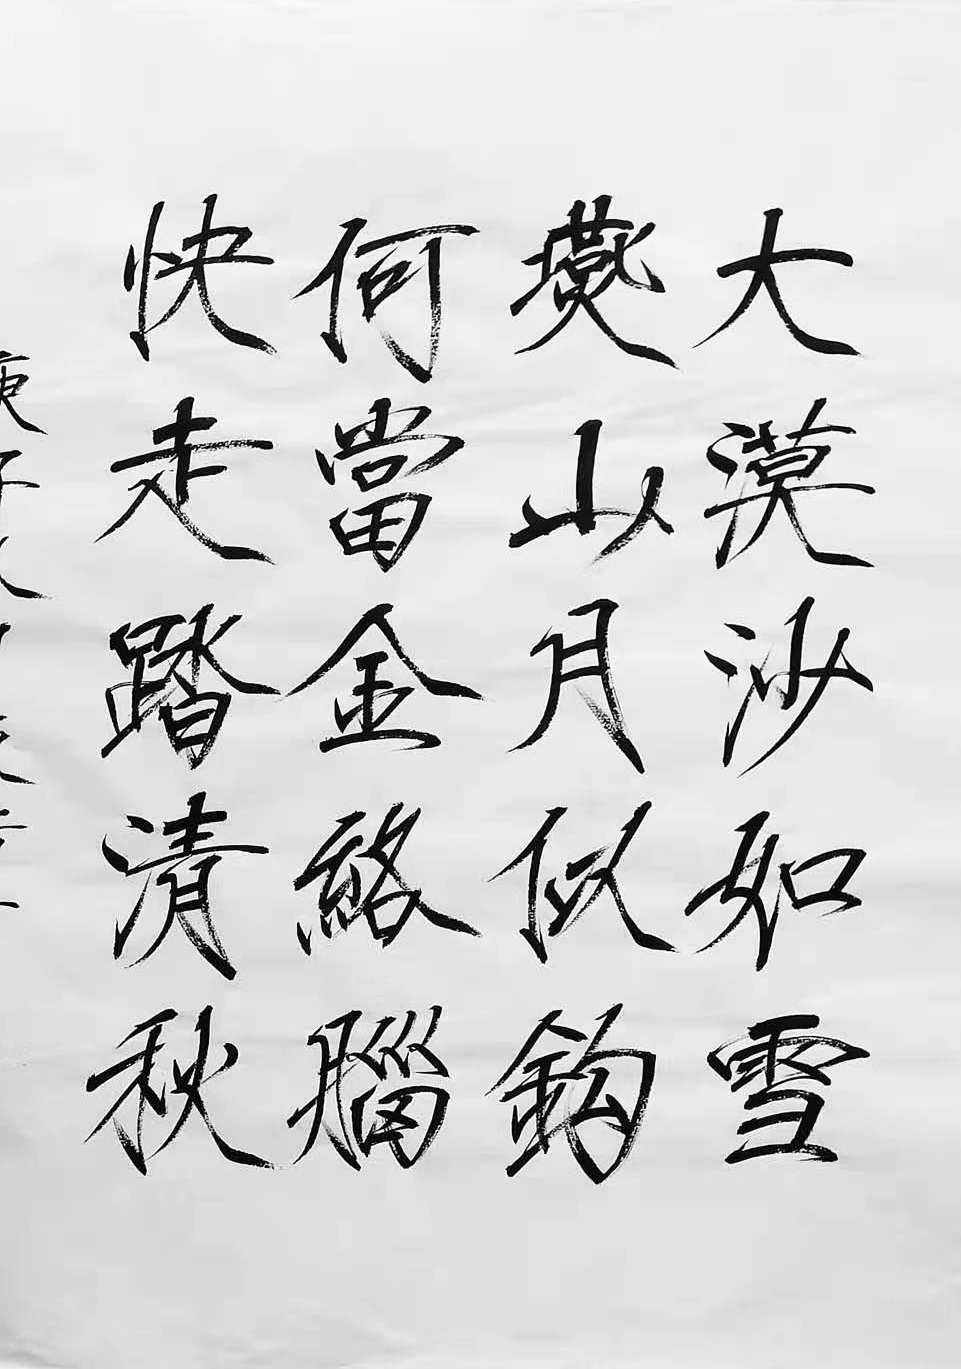 大漠沙如雪
燕山月似鈎
何當金絡腦
快走踏清秋
庚子